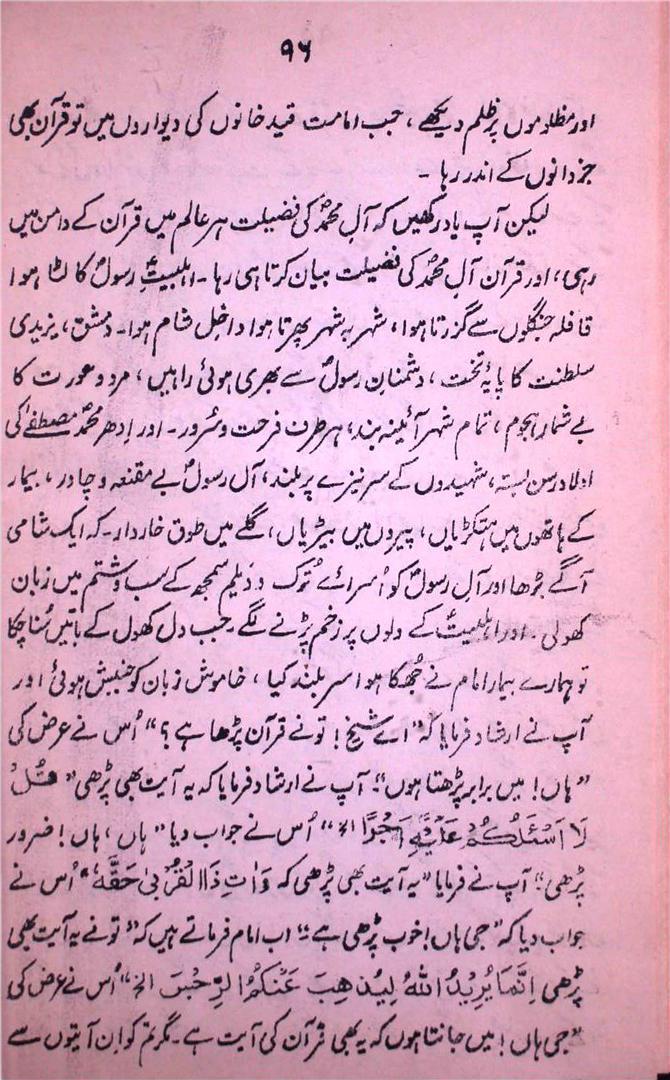 ۹۶
اور مظلوموں پر ظلم دیکھے ، جب امامت قید خانوں کی دیواروں میں تو قرآن بھی
جزدانوں کے اندر رہا ۔
لیکن آپ یاد رکھیں کہ آلِ محمدؐ کی فضیلت ہر عالم میں قرآن کے دامن میں
رہی، اور قرآن آلِ محمدؐ کی فضیلت بیان کرتا ہی رہا ۔ اہلبیتِؑ رسولؐ کا لٹا ہوا
قافلہ جنگلوں سے گزرتا ہوا، شہر بہ شہر پھرتا ہوا داخلِ شام ہوا ۔ دمشق، یزیدی
سلطنت کا پایۂ تخت ، دشمنانِ رسولؐ سے بھری ہوئی راہیں ، مرد و عورت کا
بے شمار ہجوم ، تمام شہر آئینہ بند، ہر طرف فرحت و سُرور ۔ اور اِدھر محمدؐ مصطفےٰ کی
اولاد رسن بستہ ، شہیدوں کے سر نیزے پر بلند، آل رسولؐ بے مقنعہ و چادر ، بیمار
کے ہاتھوں میں ہتکڑیاں، پیروں میں بیڑیاں، گلے میں طوق خاردار ۔ کہ ایک شامی
آگے بڑھا اور آلِ رسولؐ کو اُسرائے تُرک و دیلم سمجھ کے سب و شتم میں زبان
کھولی ۔ اور اہلبیتؑ کے دلوں پر زخم پڑنے لگے ۔ جب دل کھول کے باتیں سُنا چکا
تو ہمارے بیمار امام نے جُھکا ہوا سر بلند کیا ، خاموش زبان کو جنبش ہوئی اور
آپ نے ارشاد فرمایا کہ ”اے شیخ ! تو نے قرآن پڑھا ہے؟“ اُس نے عرض کی
”ہاں! میں برابر پڑھتا ہوں“۔ آپ نے ارشاد فرمایا کہ یہ آیت بھی پڑھی ” قُلْ
لَا اَسْئَلُكُمْ عَلَيْهِ اَجْرًا الخ“ اُس نے جواب دیا ” ہاں ، ہاں ! ضرور
پڑھی“۔ آپ نے فرمایا ” یہ آیت بھی پڑھی کہ وَاٰتِ ذَا الْقُرْبىٰ حَقَّهٗ“ اُس نے
جواب دیا کہ ” جی ہاں! خوب پڑھی ہے“۔ اب امام فرماتے ہیں کہ ” تو نے یہ آیت بھی
پڑھی اِنَّمَا يُرِيْدُ اللّٰهُ لِيُذْهِبَ عَنْكُمُ الرِّجْسَ الخ“ اُس نے عرض کی
”جی ہاں ! میں جانتا ہوں کہ یہ بھی قرآن کی آیت ہے ۔ مگر تم کو ان آیتوں سے